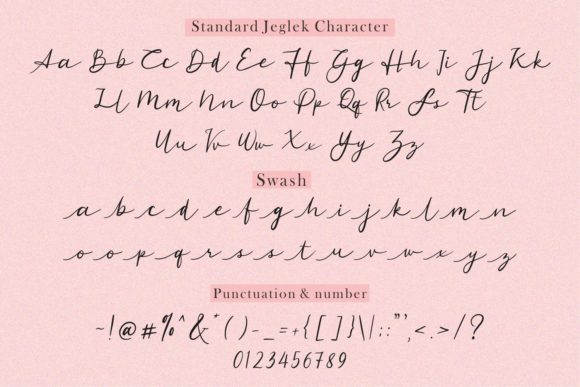 Standard Jeglek Character
Aa Bb Cc Dd Ee Ff Gg Hh Ii Jj Kk
Ll Mm Nn Oo Pp Qq Rr Ss Tt
Uu Vv Ww Xx Yy Zz
Swash
a b c d e f g h i j k l m n
o o p q r s s t u v w x y z
Punctuation & number
~!@#%^&*()-_=+{[]}\|:;"',<.>/?
0123456789